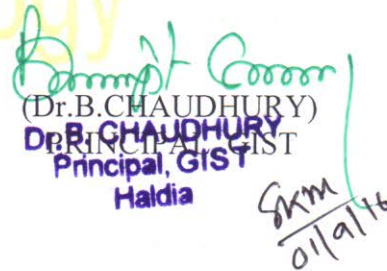 (Dr.B.CHAUDHURY)
PRINCIPAL, GIST
Dr. B. CHAUDHURY
Principal, GIST
Haldia
SKM
01/9/16